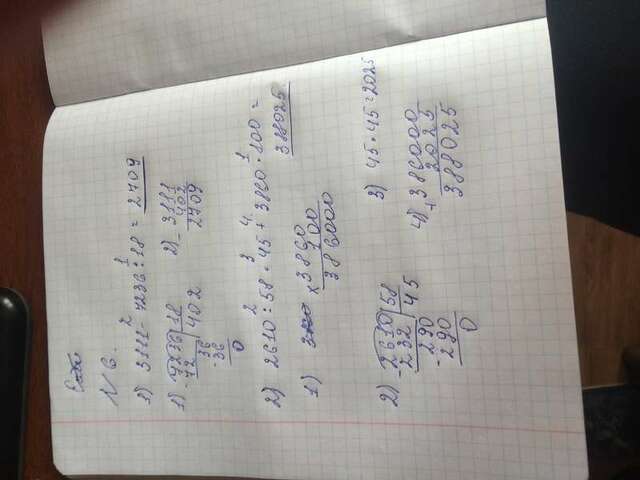 N 6.
2 1
1) 3111 - 7236 : 18 = 2709
1) 7236 | 18
- 72 402
36
- 36
0
2) 3111
- 402
2709
2 3 4. 1
2) 2610 : 58 · 45 + 3860 · 100 =
388025
1) 3860
x 100
386000
2) 2610 | 58
- 232 45
290
- 290
0
3) 45 · 45 = 2025
4) 386000
+ 2025
388025